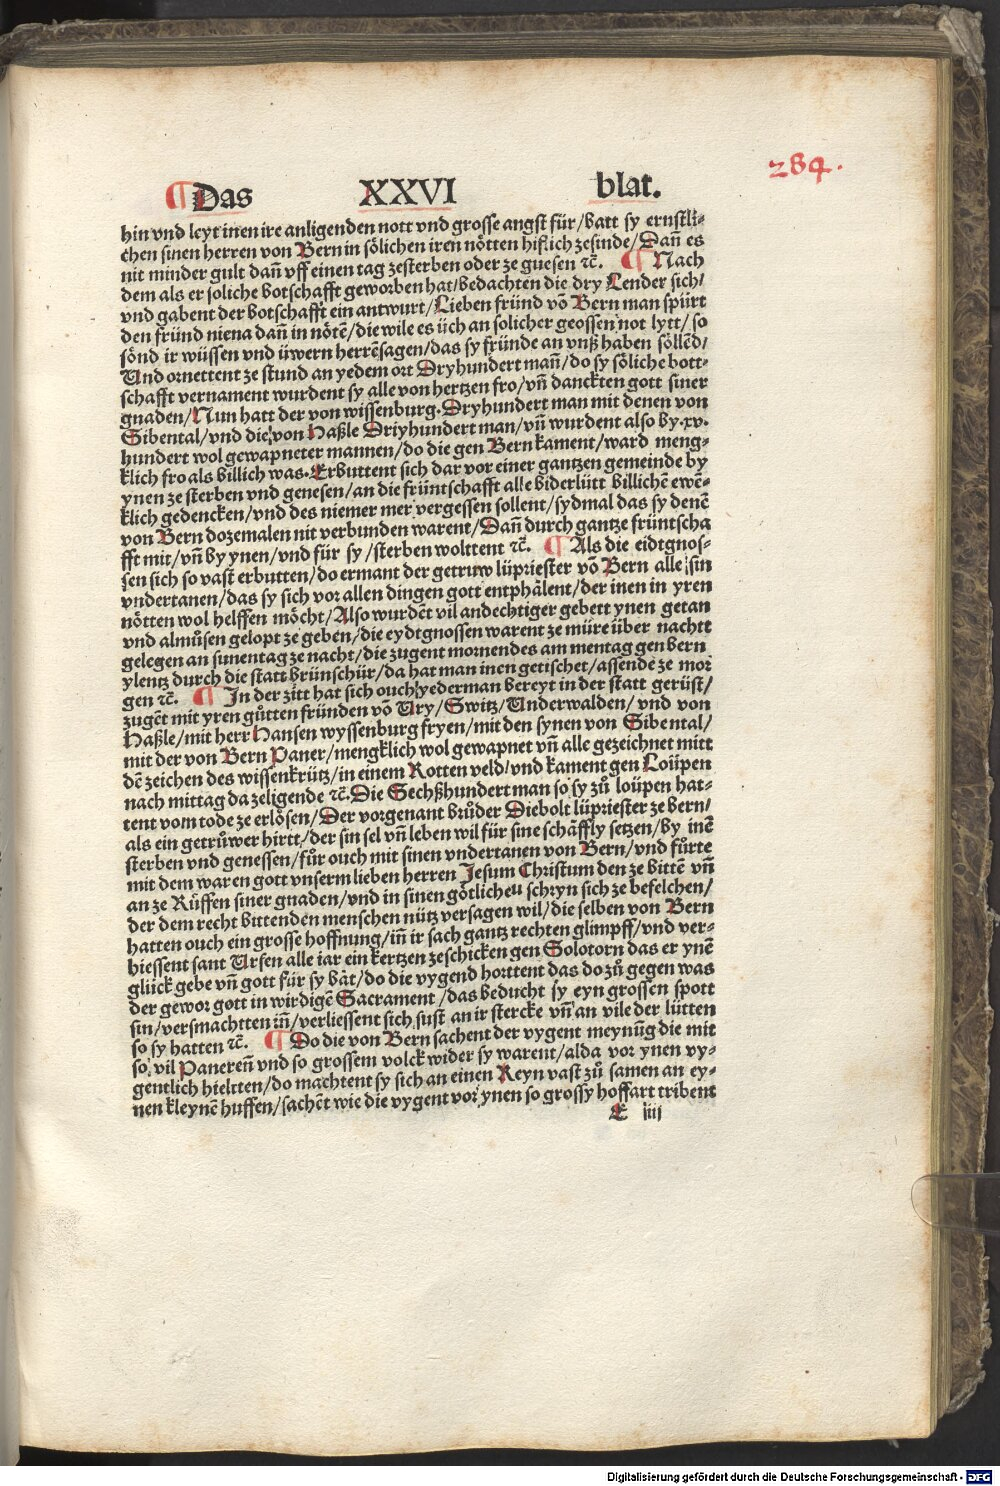 284.
¶ Das XXVI blat.
hin vnd leyt inen ire anligenden nott vnd grosse angst für/batt sy ernstli-
chen sinen herren von Bern in sölichen iren nötten hiflich zesinde/Dañ es
nit minder gult dañ vff einen tag zesterben oder ze guesen ꝛc̃. ¶ Nach
dem als er soliche botschafft geworben hat/bedachten die dry Lender sich/
vnd gabent der botschafft ein antwurt/Lieben fründ võ Bern man spürt
den fründ niena dañ in nötẽ/die wile es üch an solicher geossen not lytt/so
sönd ir wüssen vnd üwern herrẽ sagen/das sy fründe an vnß haben söllẽd/
Und ornettent ze stund an yedem ort Dryhundert mañ/do sy söliche bott-
schafft vernament wurdent sy alle von hertzen fro/vñ danckten gott siner
gnaden/Nun hatt der von wissenburg. Dryhundert man mit denen von
Sibental/vnd die von Haßle Driyhundert man/vñ wurdent also by.xv.
hundert wol gewapneter mannen/do die gen Bern kament/ward meng-
klich fro als billich was. Erbuttent sich dar vor einer gantzen gemeinde by
ynen ze sterben vnd genesen/an die früntschafft alle biderlütt billichẽ ewẽ-
klich gedencken/vnd des niemer mer vergessen sollent/sydmal das sy denẽ
von Bern dozemalen nit verbunden warent/Dañ durch gantze früntscha
fft mit/vñ by ynen/vnd für sy/sterben wolttent ꝛc̃. ¶ Als die eidtgnos-
sen sich so vast erbutten/do ermant der getruw lüpriester võ Bern alle sin
vndertanen/das sy sich vor allen dingen gott entphälent/der inen in yren
nötten wol helffen möcht/Also wurdẽt vil andechtiger gebett ynen getan
vnd almůsen gelopt ze geben/die eydtgnossen warent ze müre über nachtt
gelegen an sunentag ze nacht/die zugent mornendes am mentag gen bern
ylentz durch die statt brünschür/da hat man inen getischet/assende ze mor
gen ꝛc̃. ¶ In der zitt hat sich ouch yederman bereyt in der statt gerüst/
zugẽt mit yren gůtten fründen võ Ury/Switz/Underwalden/vnd von
Haßle/mit herr Hansen wyssenburg fryen/mit den synen von Sibental/
mit der von Bern Paner/mengklich wol gewapnet vñ alle gezeichnet mitt
dẽ zeichen des wissen krütz/in einem Rotten veld/vnd kament gen Loüpen
nach mittag da zeligende ꝛc̃. Die Sechßhundert man so sy zů loüpen hat-
tent vom tode ze erlösen/Der vorgenant brůder Diebolt lüpriester ze bern/
als ein getrůwer hirtt/der sin sel vñ leben wil für sine schäffly setzen/by inẽ
sterben vnd genessen/fůr ouch mit sinen vndertanen von Bern/vnd fürte
mit dem waren gott vnserm lieben herren Jesum Christum den ze bittẽ vñ
an ze Rüffen siner gnaden/vnd in sinen götlichen schryn sich ze befelchen/
der dem recht bittenden menschen nütz versagen wil/die selben von Bern
hatten ouch ein grosse hoffnung/iñ ir sach gantz rechten glimpff/vnd ver-
hiessent sant Ursen alle iar ein kertzen zeschicken gen Solotorn das er ynẽ
glück gebe vñ gott für sy bät/do die vygend horttent das do zů gegen was
der gewor gott in wirdigẽ Sacrament/das beducht sy eyn grossen spott
sin/versmachtten iñ/verliessent sich sust an ir stercke vñ an vile der lütten
so sy hatten ꝛc̃. ¶ Do die von Bern sachent der vygent meynũg die mit
so vil Panereñ vnd so grossem volck wider sy warent/alda vor ynen vy-
gentlich hieltten/do machtent sy sich an einen Reyn vast zů samen an ey-
nen kleynẽ huffen/sachẽt wie die vygent vor ynen so grossy hoffart tribent
E iiij
Digitalisierung gefördert durch die Deutsche Forschungsgemeinschaft - DFG